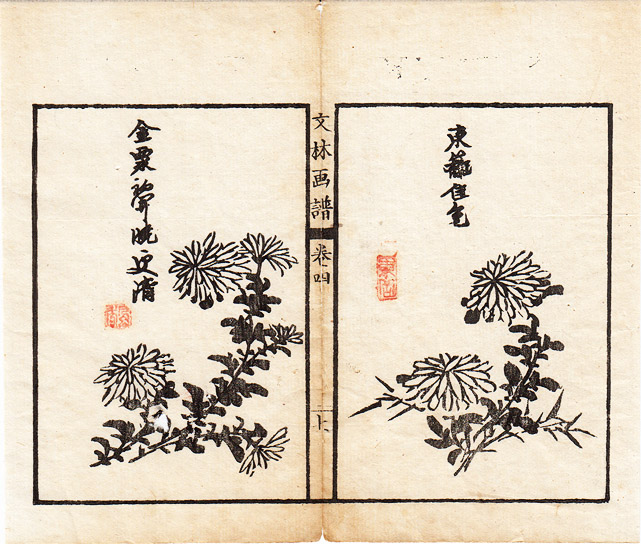 東籬佳色
文林画譜
卷四
金粟初開晚更清